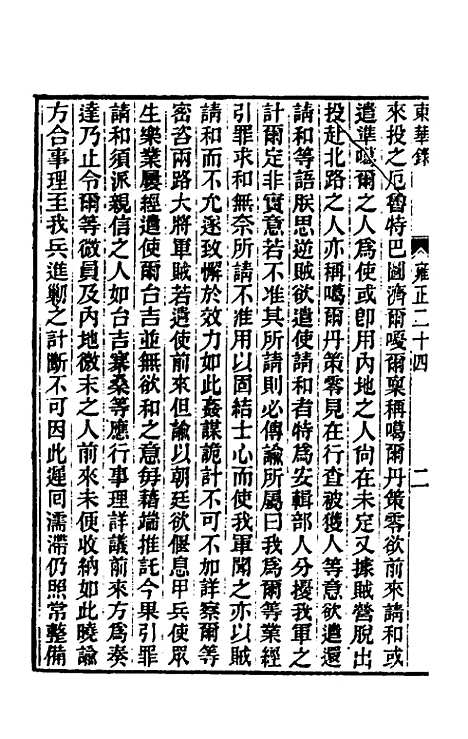 東華錄 雍正二十四 二
來投之厄魯特巴圖濟爾噶爾稟稱噶爾丹策零欲前來請和或
遣準噶爾之人爲使或卽用內地之人尙在未定又據賊營脫出
投赴北路之人亦稱噶爾丹策零見在行查被獲人等意欲遣還
請和等語朕思逆賊欲遣使請和者特爲安輯部人分擾我軍之
計爾定非實意若不允其所請則必傳諭所屬曰我爲爾等業經
引罪求和無奈所請不准用以固結士心而使我軍聞之亦以賊
請和而不允遂致懈於效力如此姦謀詭計不可不加詳察爾等
密咨兩路大將軍賊若遣使前來但諭以朝廷欲偃息甲兵使眾
生樂業屢經遣使爾台吉並無欲和之意每藉端推託今果引罪
請和須派親信之人如台吉寨桑等應行事理詳議前來方爲奏
達乃止令爾等微員及內地微末之人前來未便收納如此曉諭
方合事理至我兵進勦之計斷不可因此遲囘濡滯仍照常整備